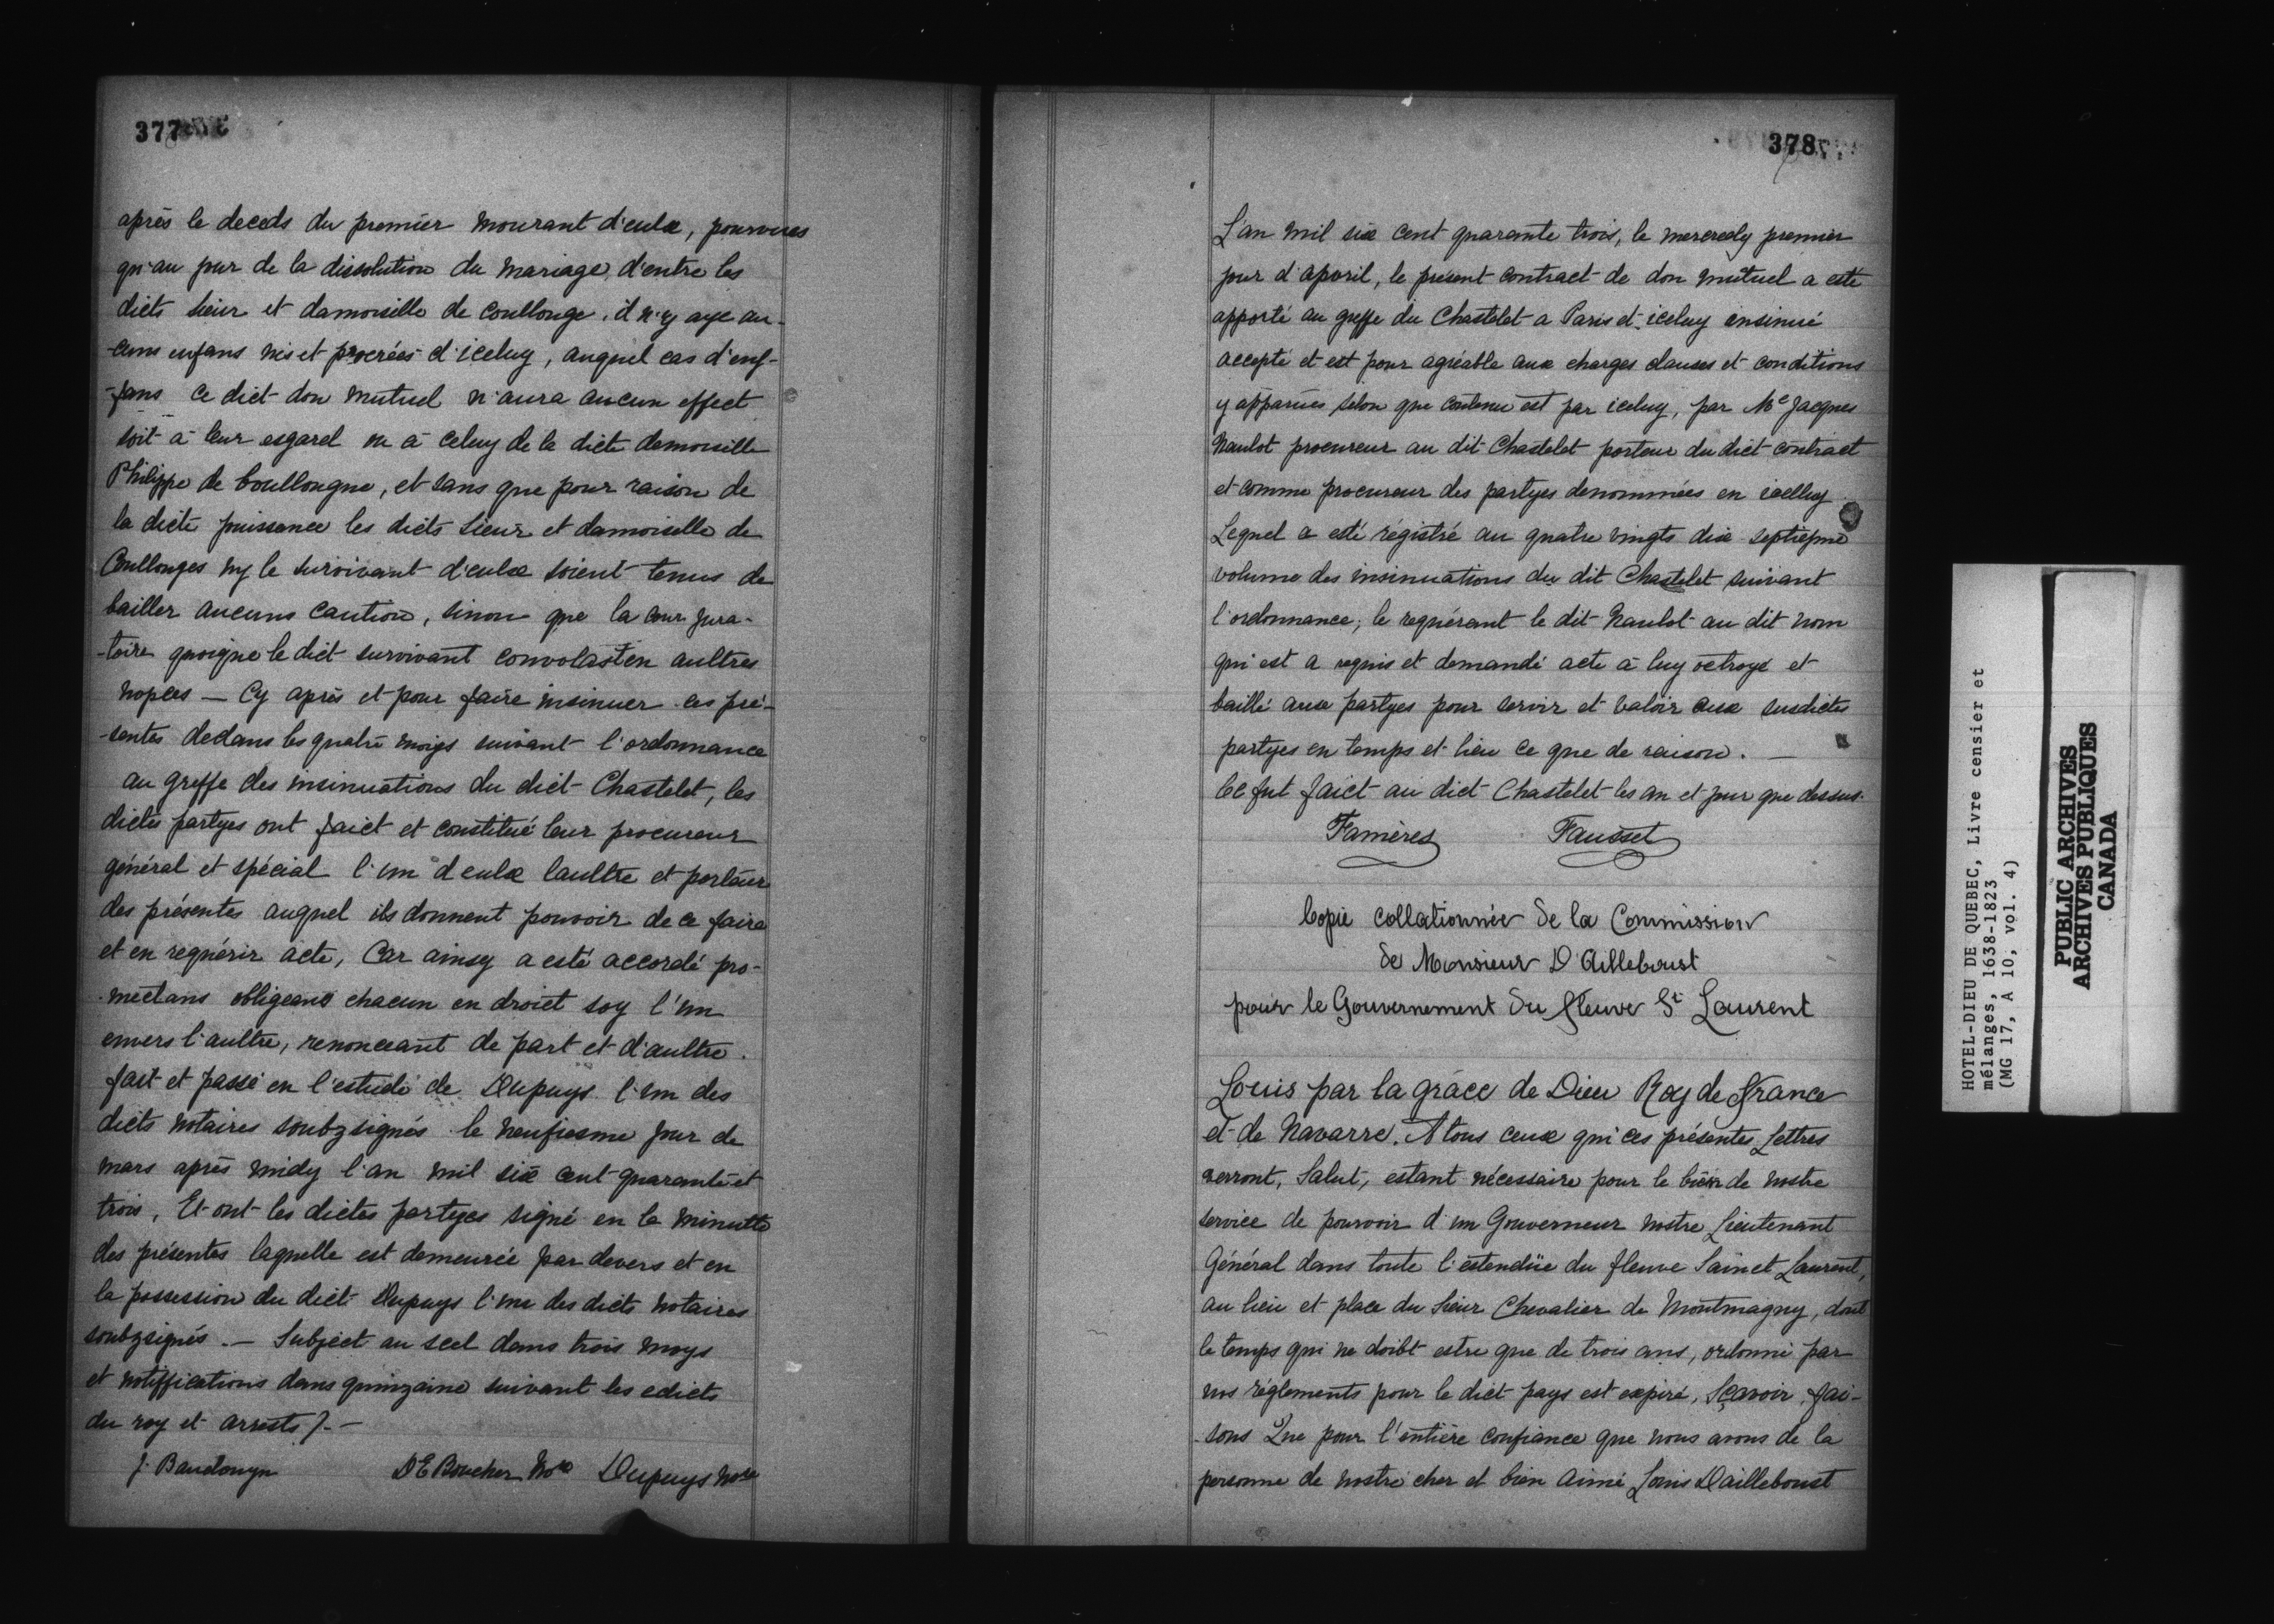 377
après le deceds du premier mourant d'eulx, pourvues
qu'au jour de la dissolution du mariage d'entre les
dicts sieur et damoiselle de Coullonge, il n'y aye au-
-cuns enfans nés et procréés d'iceluy, auquel cas d'enf-
-fans ce dict don mutuel n'aura aucun effect
soit à leur esgard ou à celuy de la dicte demoiselle
Philippe de boullongne, et sans que pour raison de
la dicte puissance les dicts sieur et damoiselle de
Coullonges ny le survivant d'eulx soient tenus de
bailler aucuns caution, sinon que la cour jura-
-toire quoique le dict survivant convolast en aultres
nopces — Cy après et pour faire insinuer ces pré-
-sentes dedans les quatre moys suivant l'ordonnance
au greffe des insinuations du dict Chastelet, les
dictes partyes ont faict et constitué leur procureur
général et spécial l'un d'eulx laultre et porteur
des présentes auquel ils donnent pouvoir de ce faire
et en requérir acte, Car ainsy a esté accordé pro-
-mectans obligeans chacun en droict soy l'un
envers l'aultre, renonceant de part et d'aultre.
fait et passé en l'estude de Dupuys l'un des
dicts notaires soubzsignés le neufiesme jour de
mars après midy l'an mil six cent quarante et
trois, Et ont les dictes partyes signé en la minutte
des présentes laquelle est demeurée par devers et en
la possession du dict Dupuys l'un des dicts notaires
soubzsignés. — Subject au scel dans trois moys
et notiffications dans quinzaine suivant les edicts
du roy et arrests /. —
J. Baudouyn DE Boucher Nore Dupuys Nore
378
L'an mil six cent quarante trois, le mercredy premier
jour d'apvril, le présent contract de don mutuel a esté
apporté au greffe du Chastelet a Paris et iceluy insinué
accepté et est pour agréable aux charges clauses et conditions
y apparües selon que contenu est par iceluy, par Me Jacques
Naulot procureur au dit Chastelet porteur du dict contract
et comme procureur des partyes denommées en icelluy
Lequel a esté régistré au quatre vingts dix septiéme
volume des insinuations du dit Chastelet suivant
l'ordonnance, le requérant le dit Naulot au dit nom
qui est a requis et demandé acte à luy octroyé et
baillé aux partyes pour servir et valoir aux susdictes
partyes en temps et lieu ce que de raison. —
Ce fut faict au dict Chastelet les an et jour que dessus.
Famères Fausset
Copie collationnée de la Commission
de Monsieur D'Ailleboust
pour le Gouvernement du fleuve St Laurent
Louis par la grâce de Dieu Roy de france
et de Navarre. A tous ceux qui ces présentes Lettres
verront, Salut, estant nécessaire pour le bien de nostre
service de pourvoir d'un Gouverneur nostre Lieutenant
Général dans toute l'estendüe du fleuve Sainct Laurent,
au lieu et place du sieur Chevalier de Montmagny, dont
le temps qui ne doibt estre que de trois ans, ordonné par
nos réglements pour le dict pays est expiré, Sçavoir fai-
-sons Que pour l'entière confiance que nous avons de la
personne de nostre cher et bien aimé Louis Dailleboust
HOTEL-DIEU DE QUEBEC, Livre censier et
mélanges, 1638-1823
(MG 17, A 10, vol. 4)
PUBLIC ARCHIVES
ARCHIVES PUBLIQUES
CANADA